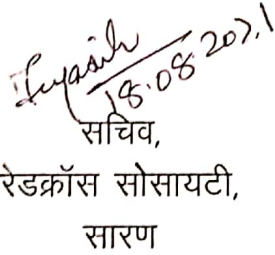 18.08.2021
सचिव,
रेडक्रॉस सोसायटी,
सारण